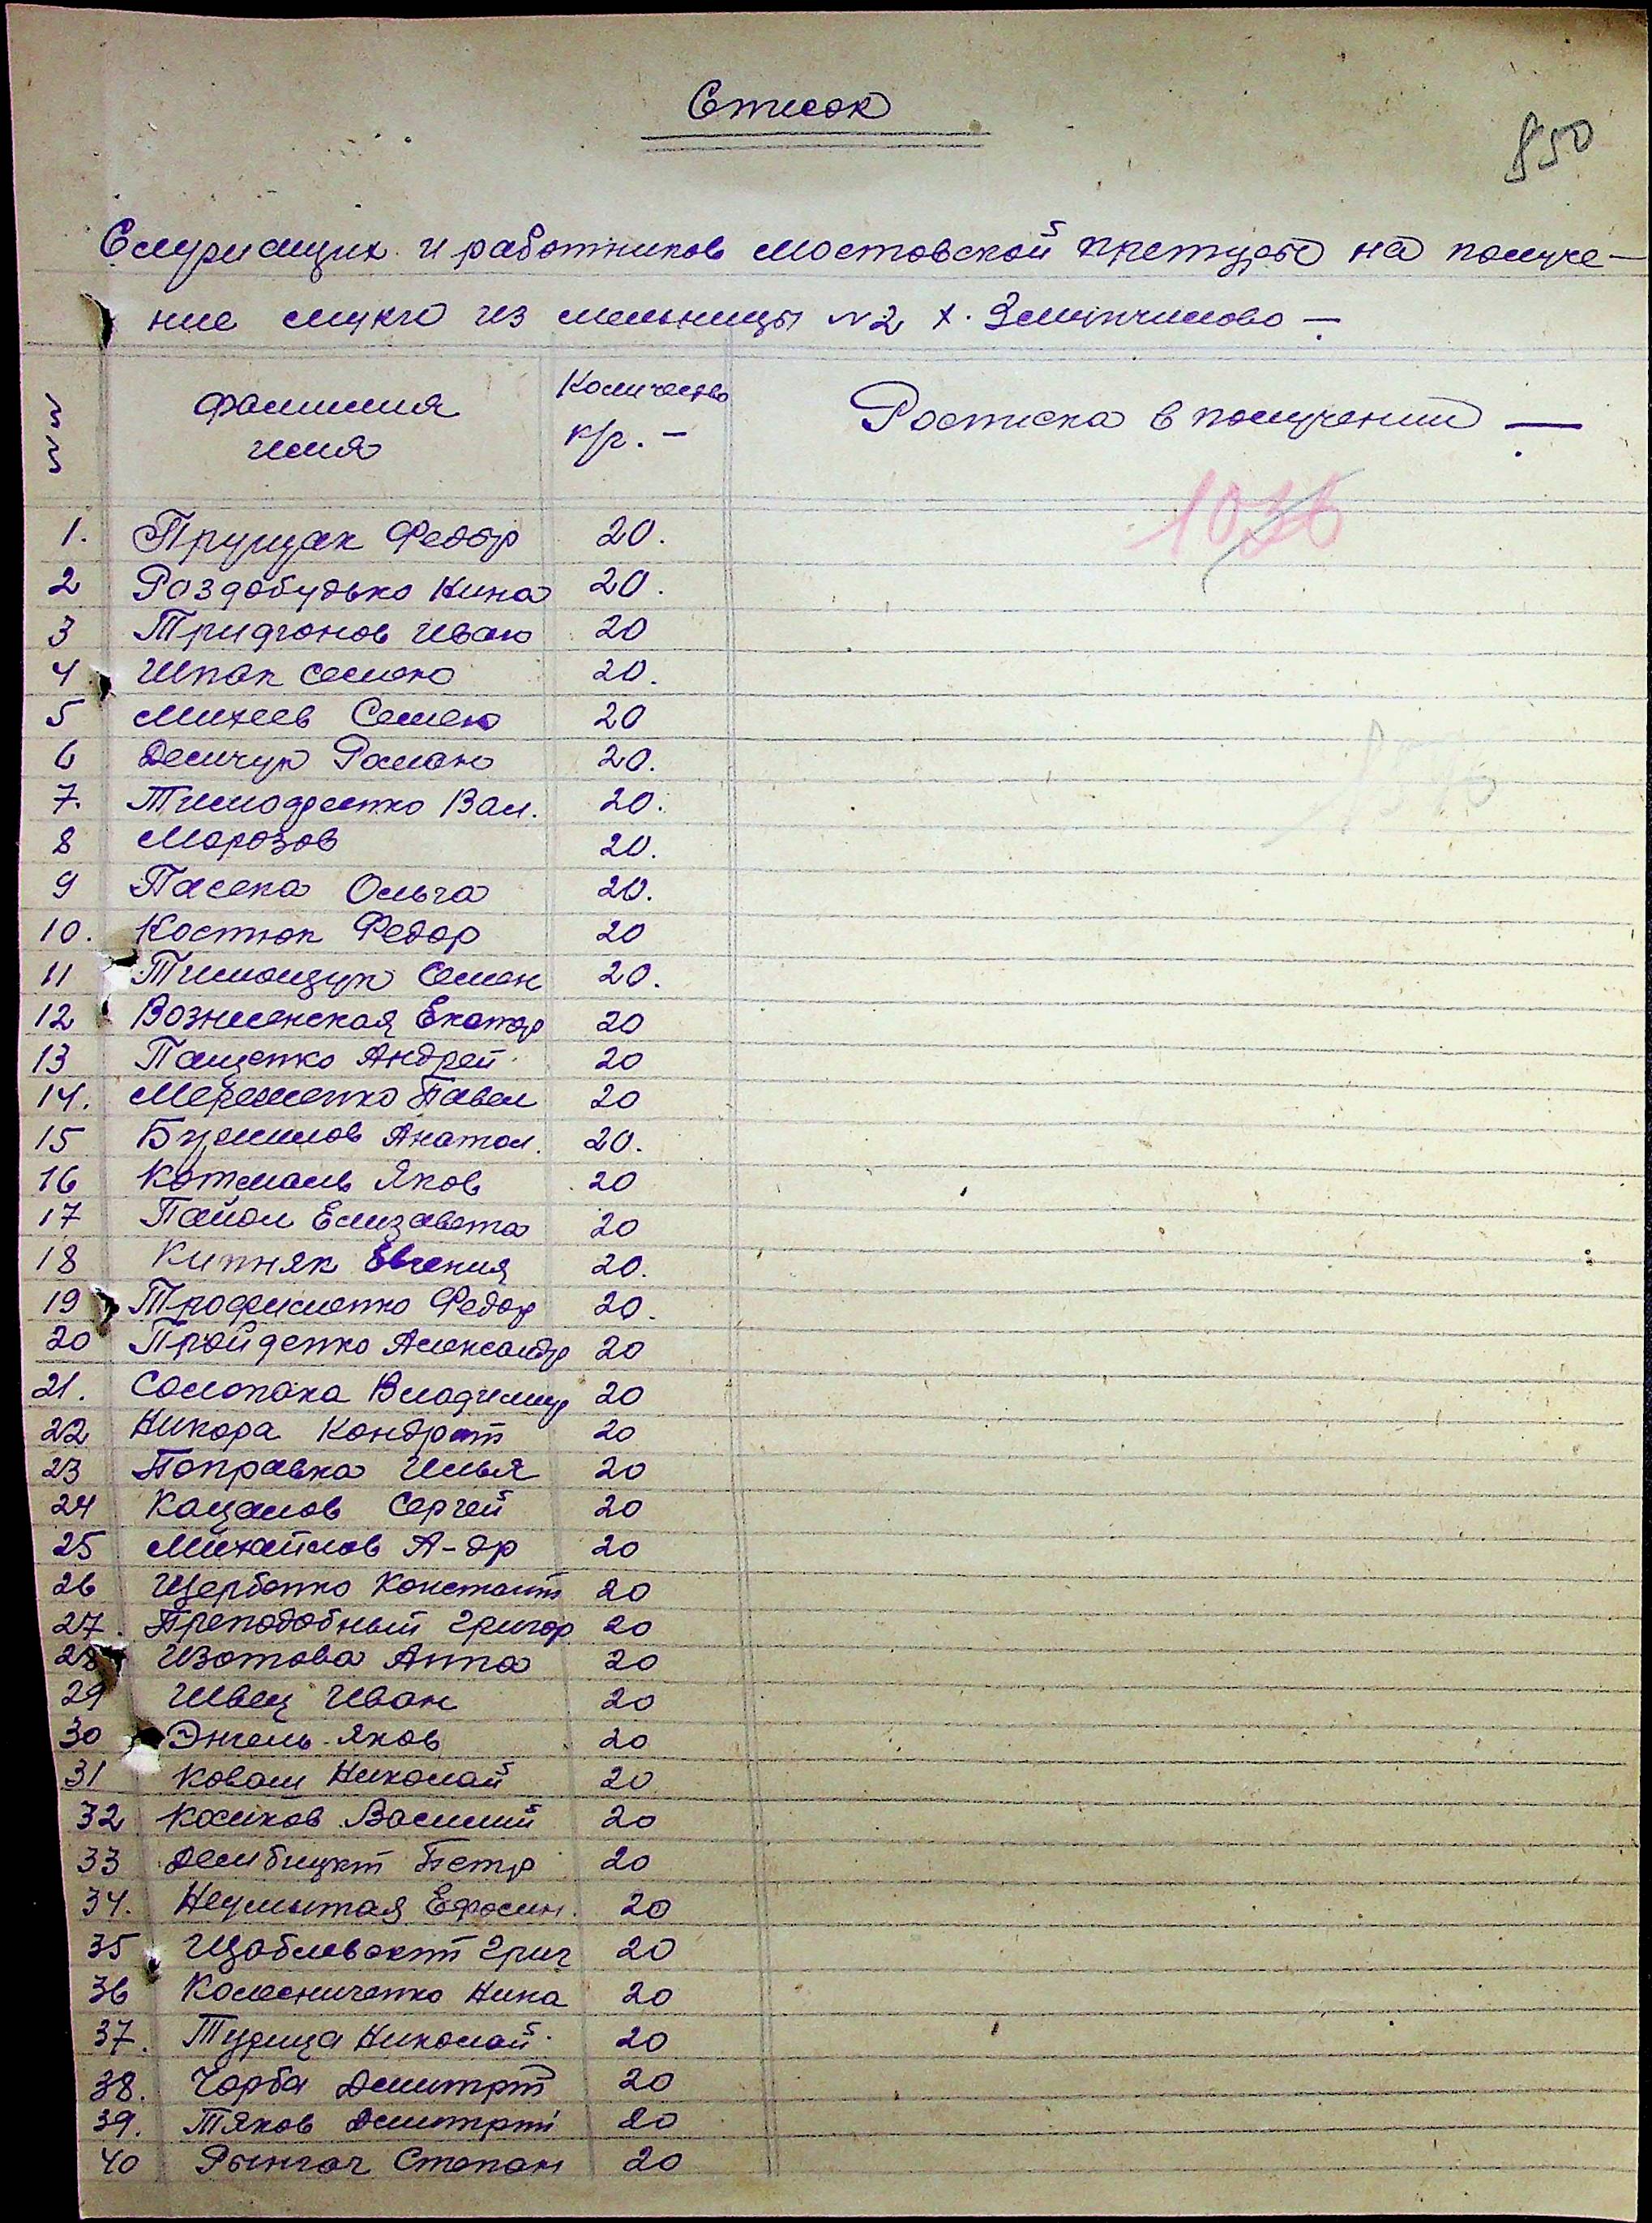 Список
850
Служащих и работников Мостовской претуры на получе-
ние муки из мельницы №2 х.
№№
фамилия
имя
Количество
к/г. -
Росписка в получении —
1036
1. Прущак Федор 20.
2 Роздобудько Нина 20.
3 Трифонов Иван 20
4 Шпак Семен 20.
5 Михеев Семен 20
6 Демчук Роман 20.
7. Тимофеенко Вал. 20.
8 Марозов 20.
9 Пасека Ольга 20.
10. Костюк Федор 20
11 Тимощук Семен 20.
12 Вознесенская Екатер 20
13 Пащенко Андрей 20
14. Мереженко Павел 20
15 Бурмилов Анатол. 20.
16 Котмань Яков 20
17 Пайол Елизавета 20
18 Кипняк Евгения 20.
19 Трофименко Федор 20.
20 Пройденко Александр 20
21. Солопака Владимир 20
22 Никора Кондрат 20
23 Поправка Илья 20
24 Кацалов Сергей 20
25 Михайлов А-др 20
26 Щербанко Констант 20
27. Преподобный Григор 20
28 Изотова Анна 20
29 Швец Иван 20
30 Энгель Яков 20
31 Ковал Николай 20
32 Косиков Василий 20
33 Дембицкий Петр 20
34. Неумытая Ефросин. 20
35 Щаблевский Григ 20
36 Колесниченко Нина 20
37. Турица Николай 20
38. Чорба Дмитрий 20
39. Тяков Дмитрий 20
40 Рынгач Степан 20